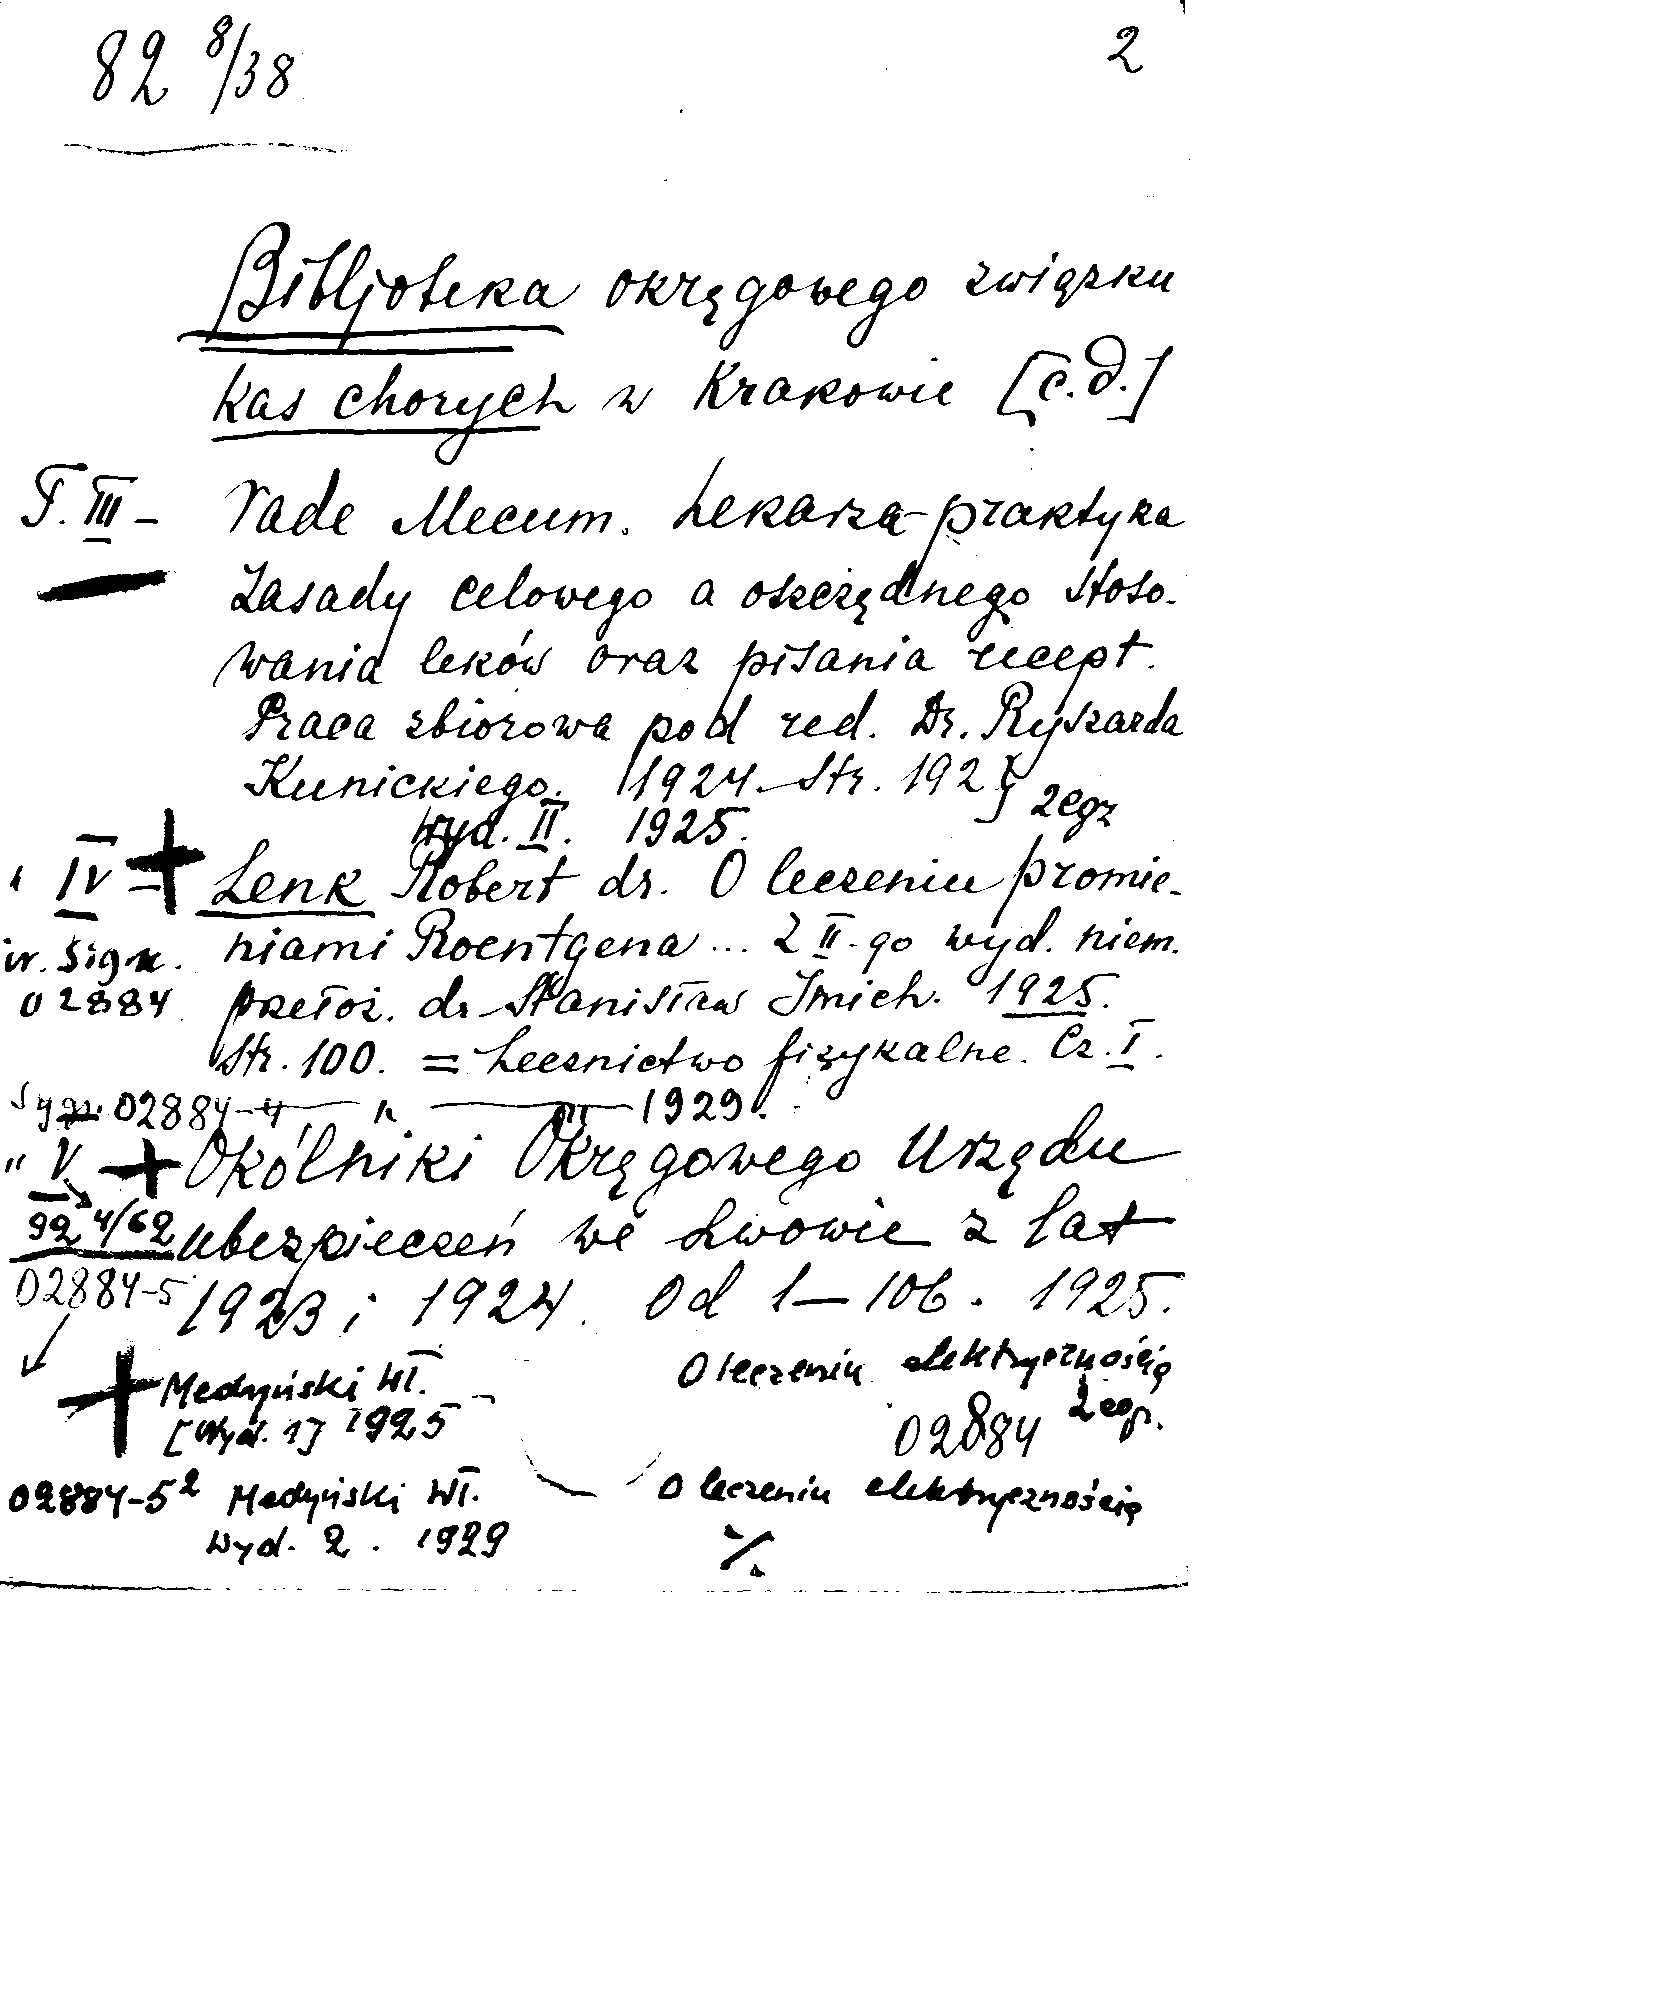 82 8/38
2
Bibljoteka okręgowego związku
kas chorych w Krakowie [c.d.]
T. III – Vade Mecum. Lekarza-praktyka
Zasady celowego a oszczędnego stoso-
wania leków oraz pisania recept.
Praca zbiorowa pod red. Dr. Ryszarda
Kunickiego. 1924 Str. 192 } 2 egz
Wyd. II. 1925.
" IV – Lenk Robert dr. O leczeniu promie-
niami Roentgena ... z II-go wyd. niem.
sign. 02884
przełoż. dr Stanisław Imich. 1925.
Str. 100. = Lecznictwo fizykalne. Cz. I.
Sygn. 02884-4 — " — 1929.
" V + Okólniki Okręgowego Urzędu
92 4/62 ubezpieczeń we Lwowie z lat
02884-5 1923 i 1924. Od 1–106. 1925.
+ Medyński Wł. O leczeniu elektrycznością
[Wyd. 1] 1925 02884 2 egz.
02884-5² Medyński Wł. O leczeniu elektrycznością
Wyd. 2. 1929